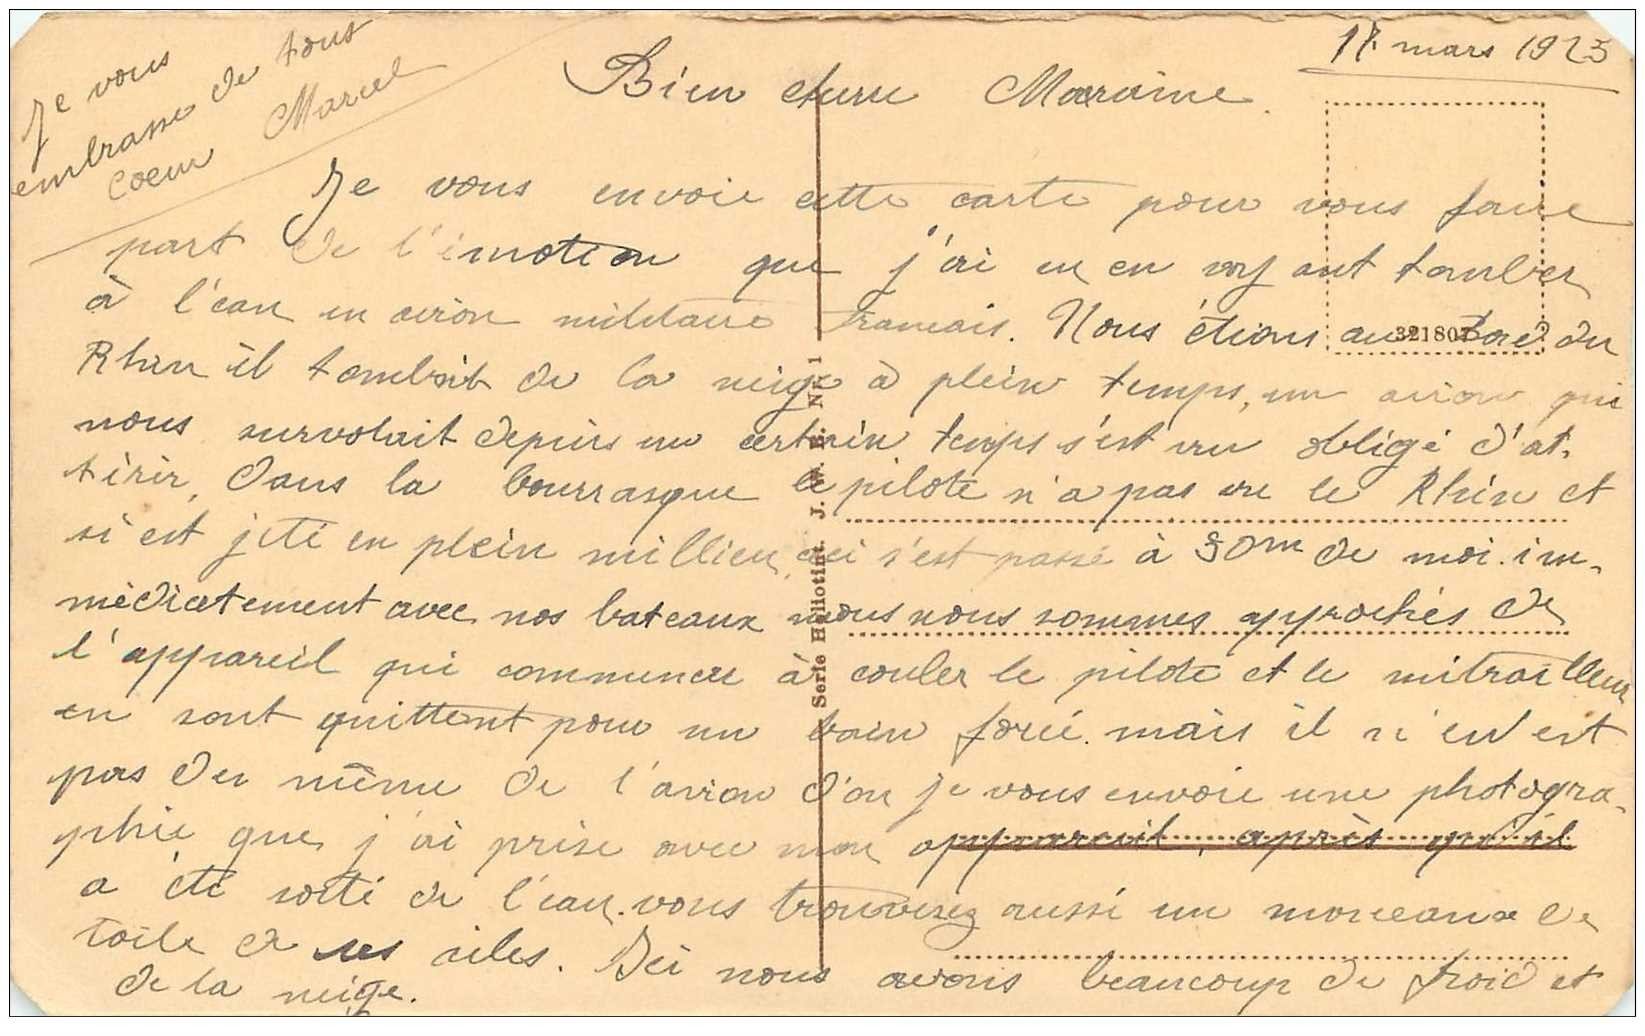 17 mars 1925
Bien chere Marraine.
Je vous envoie cette carte pour vous faire
part de l'émotion que j'ai eu en voyant tomber
à l'eau un avion militaire francais. Nous étions au bord du
Rhin il tombait de la neige à plein temps, un avion qui
nous survolait depuis un certain temps s'est vu obligé d'at-
térir, dans la bourrasque le pilote n'a pas vu le Rhin et
s'i est jeté en plein millieu, ceci s'est passé à 50m de moi. im-
médiatement avec nos bateaux nous nous sommes approchés de
l'appareil qui commence à couler le pilote et le mitrailleur
en sont quittent pour un bain forcé. mais il n'en est
pas de même de l'avion d'on je vous envoie une photogra-
phie que j'ai prise avec mon appareil, après qu'il
a été sorti de l'eau. vous trouverez aussi un morceaux de
toile de ses ailes. Ici nous avons beaucoup de froid et
de la neige.
Je vous
embrasse de tout
coeur Marcel
321807
Serie Heliotint. J. W. B. Nr. 1